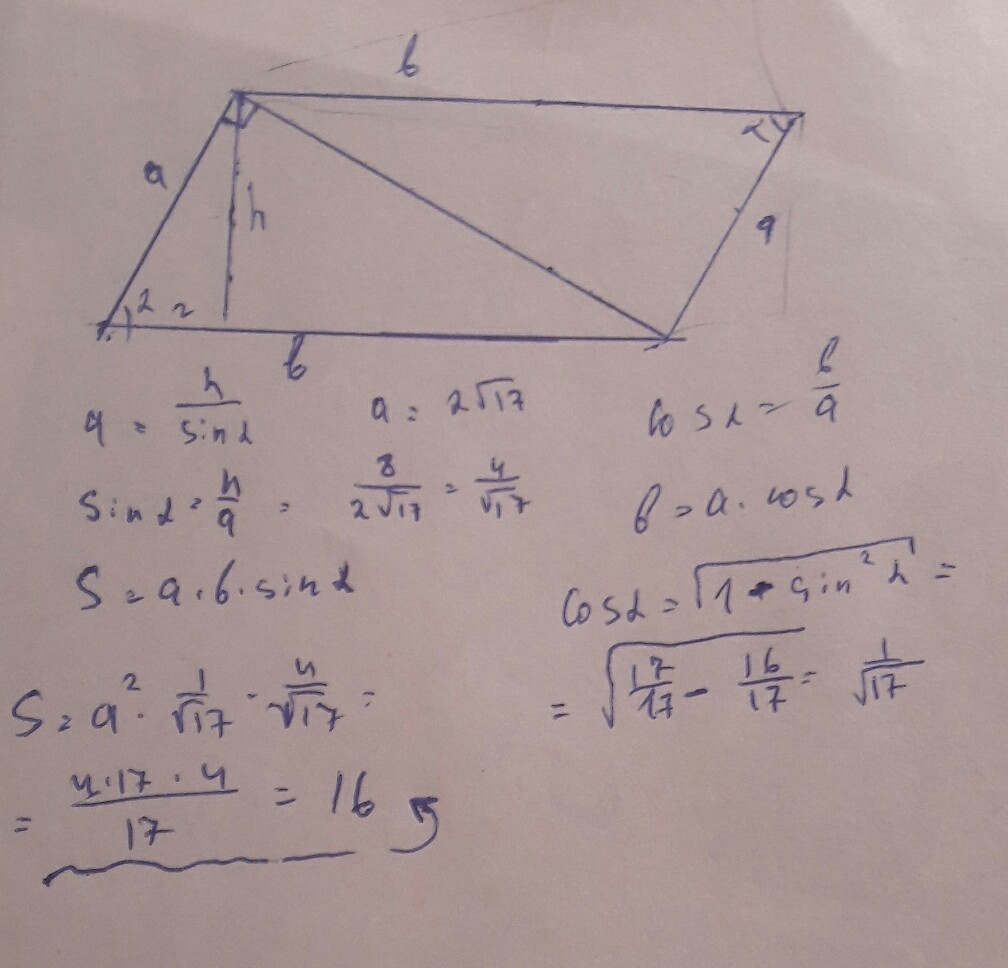 b
a
h
α
a
α 2
b
a = h/sinα    a = 2√17    cosα = b/a
sinα = h/a = 8/(2√17) = 4/√17    b = a · cosα
S = a · b · sinα    cosα = √(1 - sin²α) =
= √(17/17 - 16/17) = 1/√17
S = a² · 1/√17 · 4/√17 =
= (4·17·4)/17 = 16